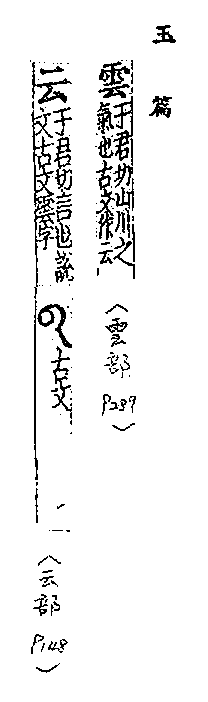 玉篇
雲于君切山川之氣也古文作云
〈雲部 P289〉
云于君切言也說文古文雲字 古文
〈云部 P148〉